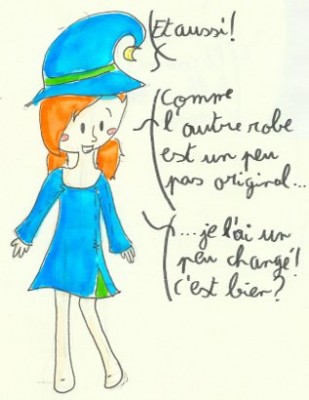 Et aussi!
Comme
l'autre robe
est un peu
pas original...
...je l'ai un
peu changé!
c'est bien?